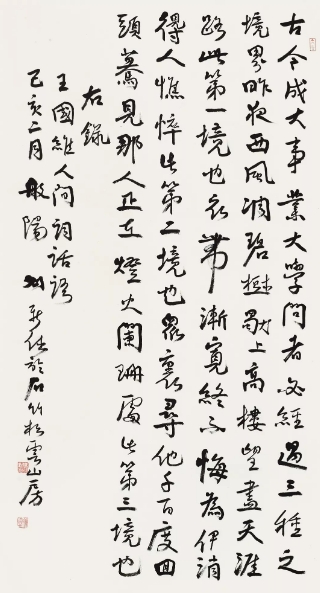 古今成大事業大學問者必經過三種之
境界昨夜西風凋碧樹獨上高樓望盡天涯
路此第一境也衣帶漸寬終不悔為伊消
得人憔悴此第二境也眾裏尋他千百度回
頭驀見那人正在燈火闌珊處此第三境也
右錄
王國維人間詞話語
己亥二月 般陽 於石竹松雲山房